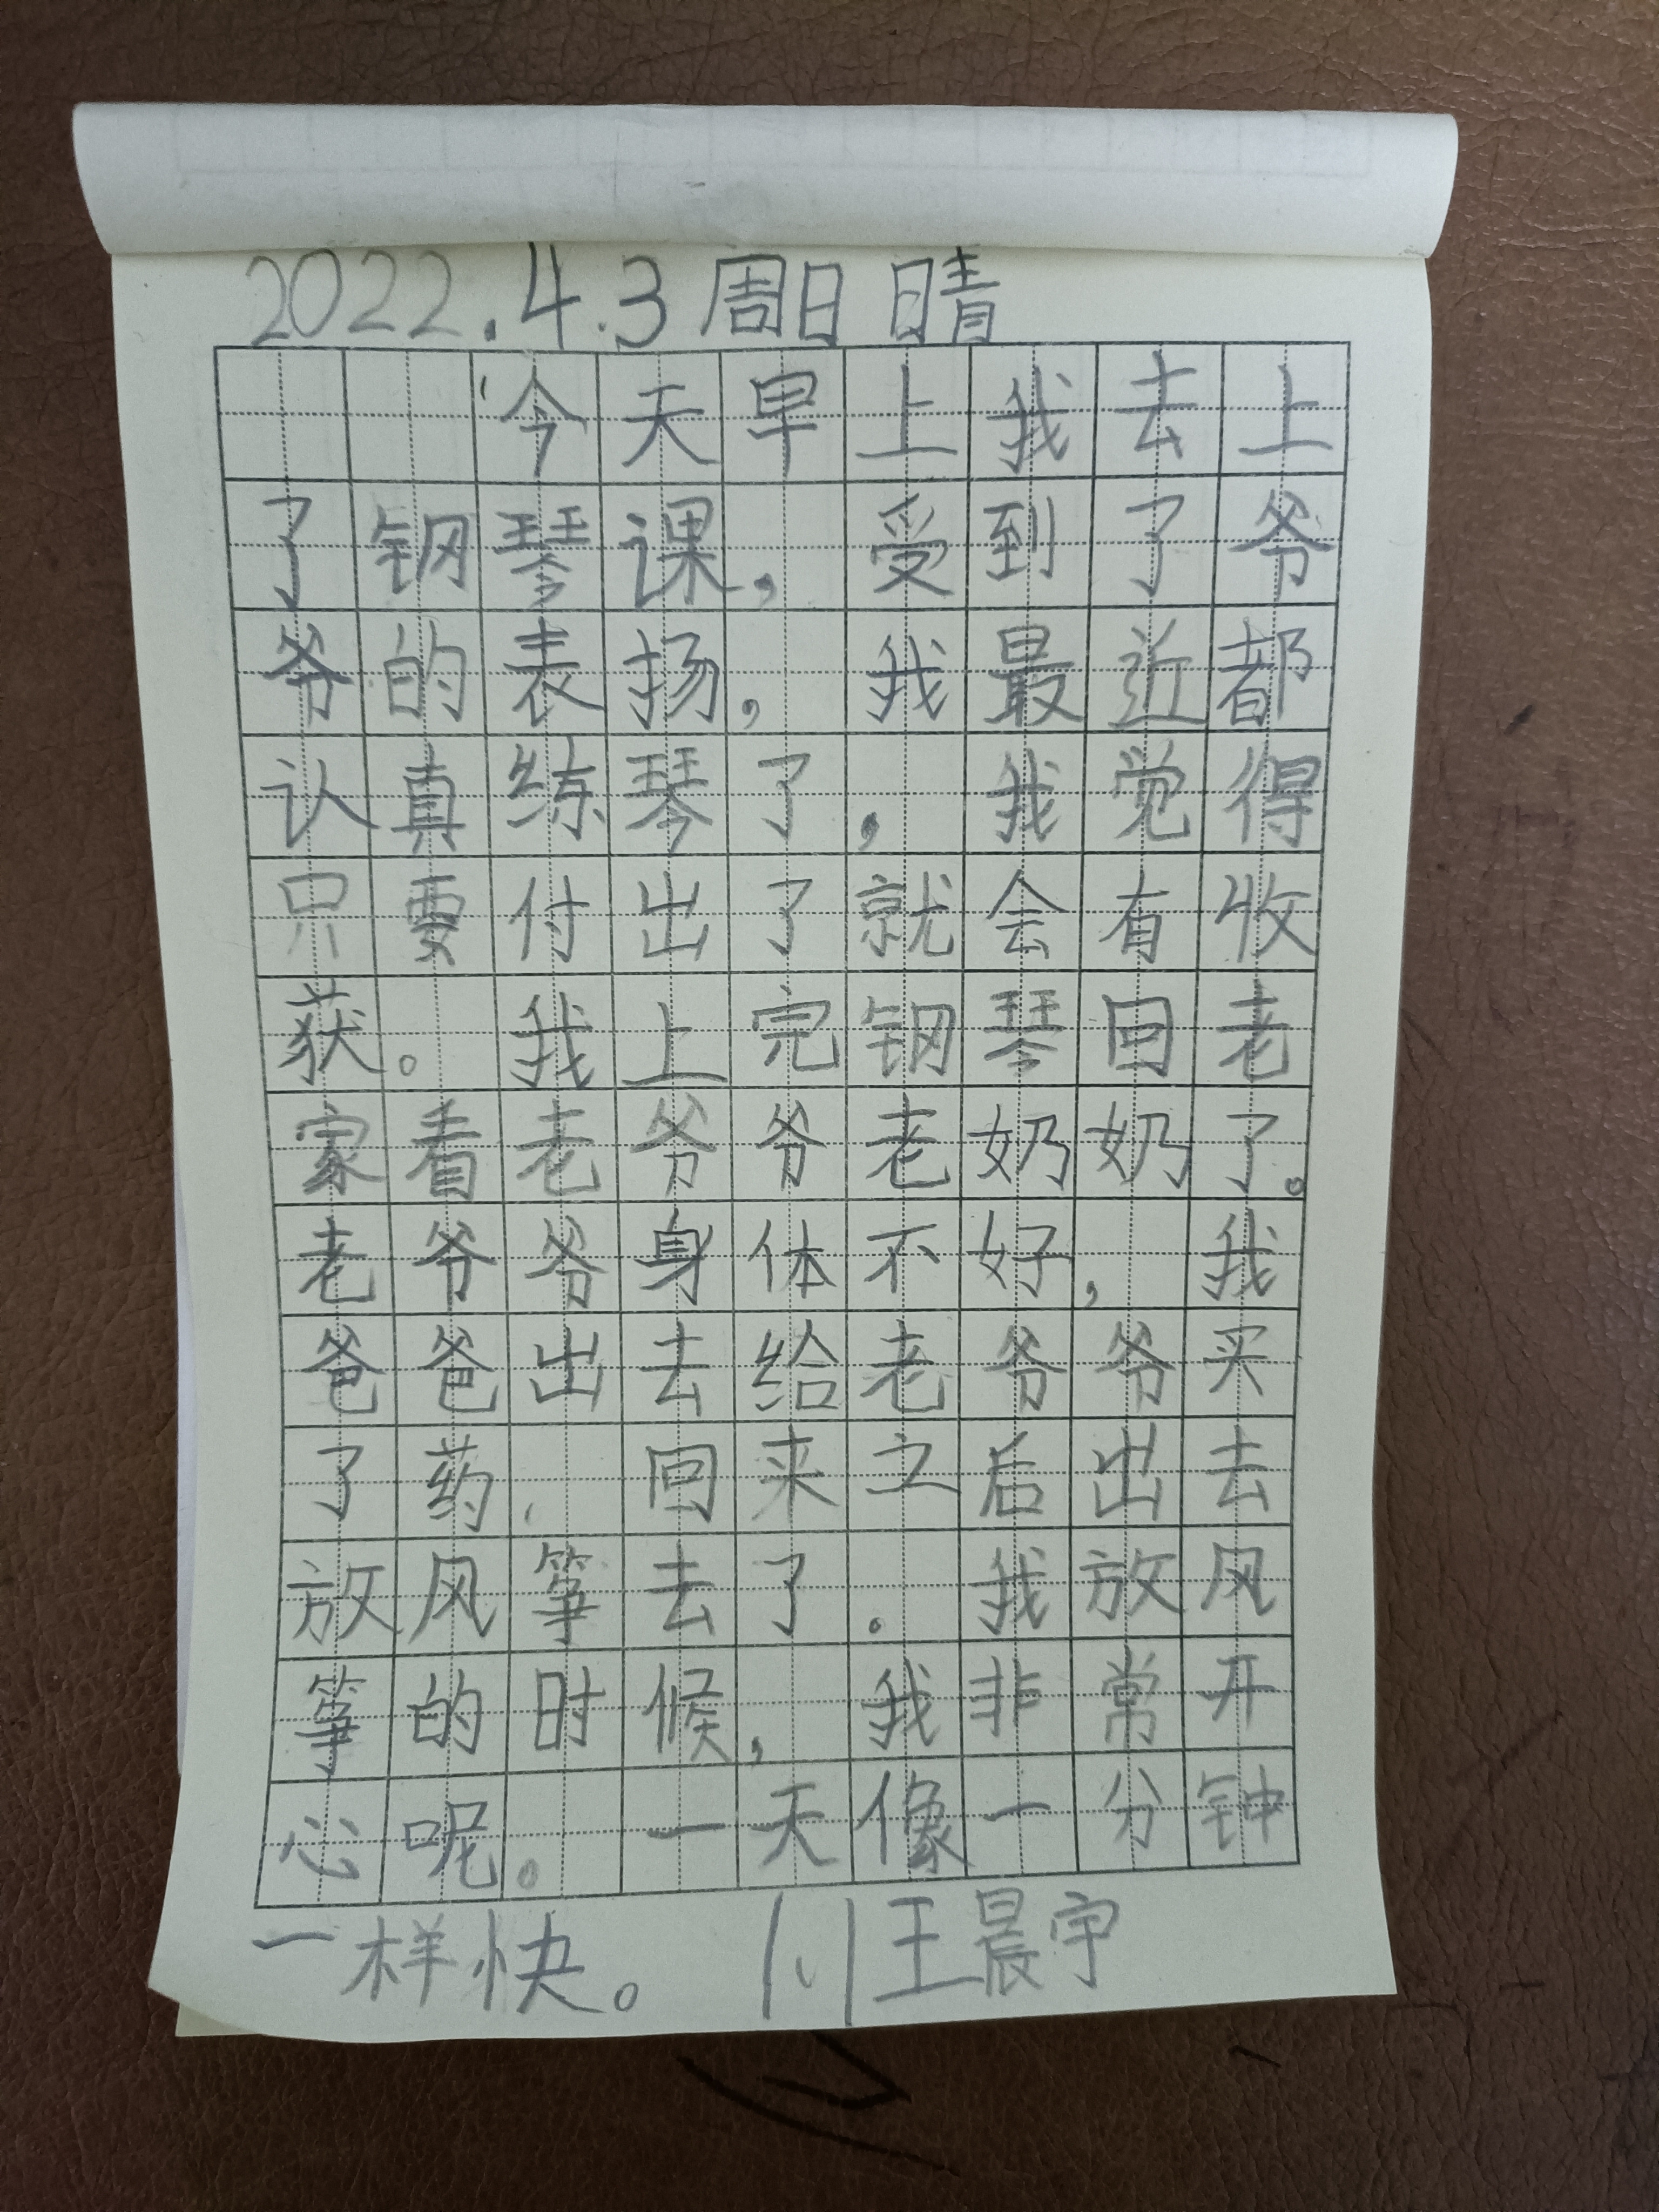 2022.4.3周日 晴
今天早上我去上
了钢琴课，受到了爷
爷的表扬，我最近都
认真练琴了，我觉得
只要付出了就会有收
获。我上完钢琴回老
家看老爷爷老奶奶了。
老爷爷身体不好，我
爸爸出去给老爷爷买
了药，回来之后出去
放风筝去了。我放风
筝的时候，我非常开
心呢。一天像一分钟
一样快。 1.1王晨宇